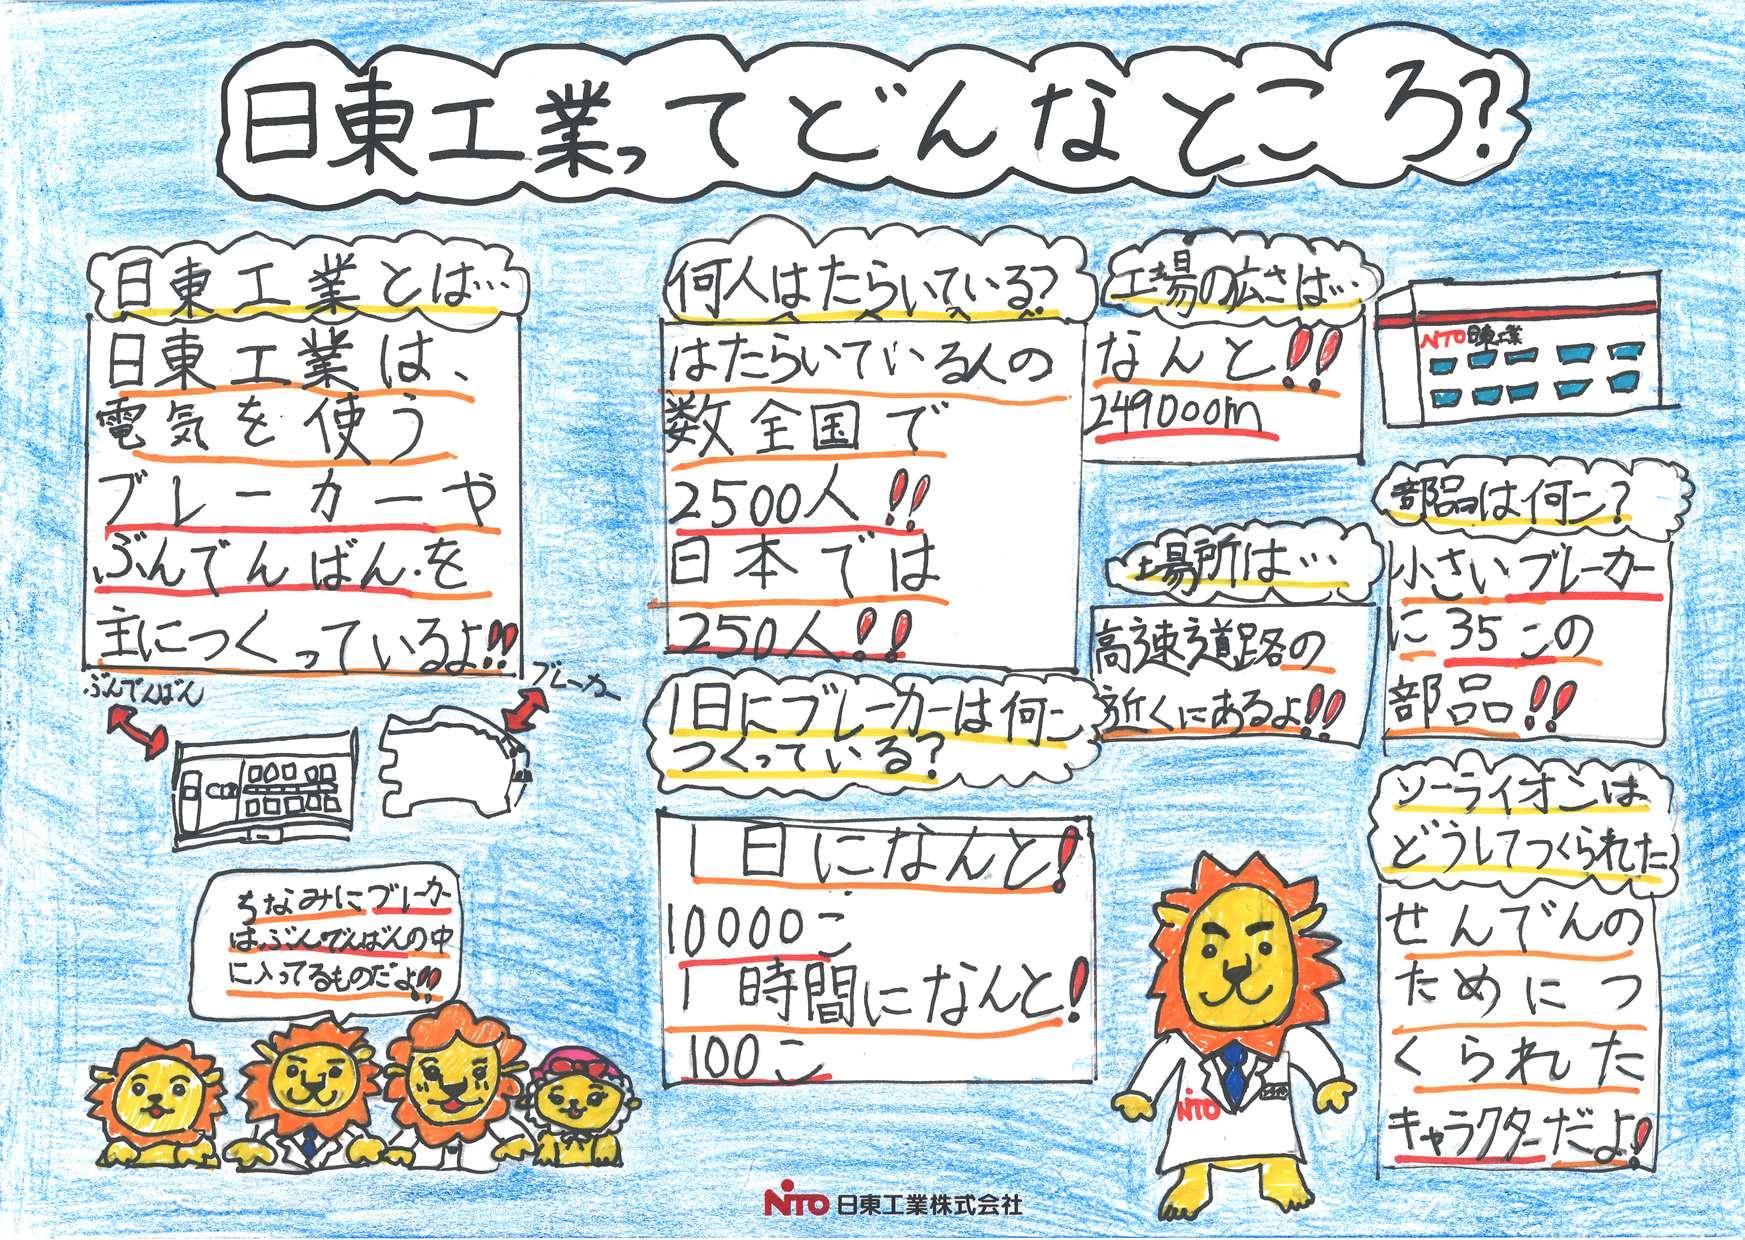 日東工業ってどんなところ?
日東工業とは…
日東工業は、
電気を使う
ブレーカーや
ぶんでんばんを
主につくっているよ!!
ぶんでんばん
ブレーカー
ちなみにブレーカー
はぶんでんばんの中
に入ってるものだよ!!
何人はたらいている?
はたらいている人の
数全国で
2500人!!
日本では
250人!!
1日にブレーカーは何こ
つくっている?
1日になんと!
10000こ
1時間になんと!
100こ
工場の広さは…
なんと!!
249000m
NITO日東工業
場所は…
高速道路の
近くにあるよ!!
部品は何こ?
小さいブレーカー
に35この
部品!!
ソーライオンは
どうしてつくられた
せんでんの
ためにつ
くられた
キャラクターだよ!
NITO
NITO 日東工業株式会社